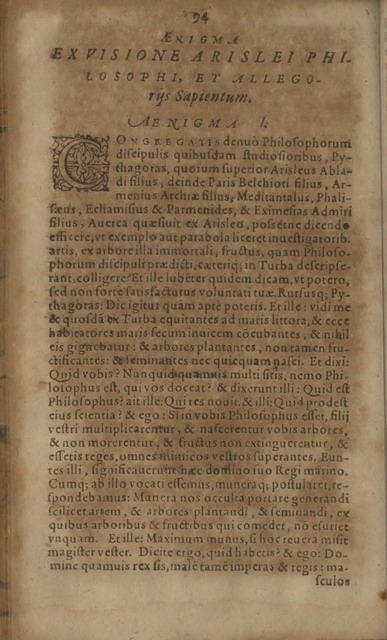 94
ÆNIGMA
EX VISIONE ARISLEI PHI-
LOSOPHI, ET ALLEGO-
rijs Sapientum.
AENIGMA I.
CONGREGATIS denuò Philosophorum
discipulis quibusdam studiosioribus, Py-
thagoras, quorum superior Arisleus Abla-
di filius, deinde Paris Belchioti filius, Ar-
menius Archiæ filius, Meditantalus, Phali-
sæus, Echamisius & Parmenides, & Eximesias Admiri
filius, Auerca quæsiuit ex Arisleo, possétne dicendo
efficere, vt exemplo aut parabola liceret inuestigatorib.
artis, ex arbore illa immortali, fructus, quam Philoso-
phorum discipuli prædicti, cæteriq; in Turba descripse-
rant, colligere? Et ille lubéter quidem dicam, vt potero,
sed non forte satisfacturus voluntati tuæ. Rursusq; Py-
thagoras: Dic igitur quam aptè poteris. Et ille: vidi me
& quosdā ex Turba equitantes ad maris littora, & ecce
habitatores maris secum inuicem cōcubantes, & nihil
eis gignebatur: & arbores plantantes, non tamen fru-
ctificantes: & seminantes nec quicquam nasci. Et dixi:
Quid vobis? Nunquid quamuis multi sitis, nemo Phi-
losophus est, qui vos doceat? & dixerunt illi: Quid est
Philosophus? ait ille: Qui res nouit. & illi: Quid prodest
eius scientia? & ego: Si in vobis Philosophus esset, filij
vestri multiplicarentur, & nascerentur vobis arbores,
& non morerentur, & fructus non extinguerentur, &
essetis reges, omnes inimicos vestros superantes. Eun-
tes illi, significauerunt hæc domino suo Regi marino.
Cumq; ab illo vocati essemus, muneraq; postularet, re-
spondebamus: Munera nos occulta portare generandi
scilicet artem, & arbores plantandi, & seminandi, ex
quibus arboribus & fructibus qui comedet, nō esuriet
vnquam. Et ille: Maximum munus, si hoc reuera misit
magister vester. Dicite ergo, quid habetis? & ego: Do-
mine quamuis rex sis, male tamē imperas & regis: ma-
sculos